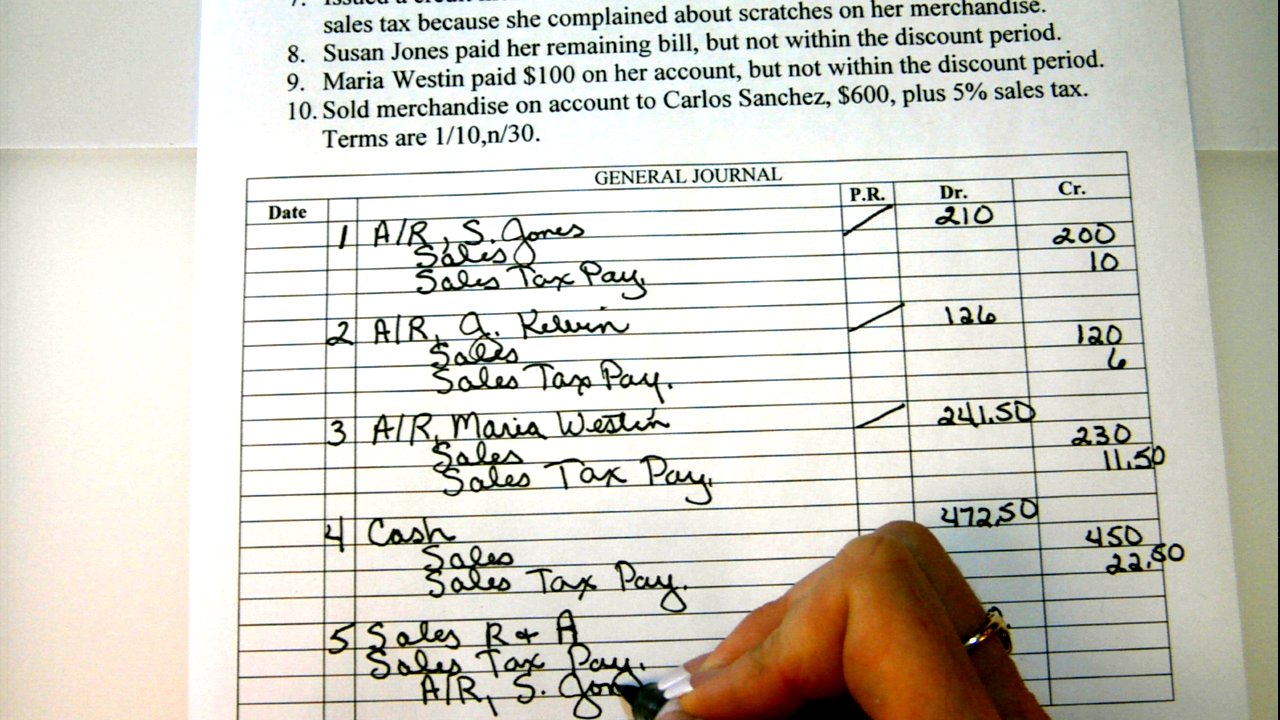 sales tax because she complained about scratches on her merchandise.
8. Susan Jones paid her remaining bill, but not within the discount period.
9. Maria Westin paid $100 on her account, but not within the discount period.
10. Sold merchandise on account to Carlos Sanchez, $600, plus 5% sales tax.
Terms are 1/10,n/30.
GENERAL JOURNAL
Date P.R. Dr. Cr.
1 A/R, S. Jones 210
Sales 200
Sales Tax Pay. 10
2 A/R, A. Kelvin 126
Sales 120
Sales Tax Pay. 6
3 A/R, Maria Westin 241.50
Sales 230
Sales Tax Pay. 11.50
4 Cash 472.50
Sales 450
Sales Tax Pay. 22.50
5 Sales R + A
Sales Tax Pay.
A/R, S. Jon